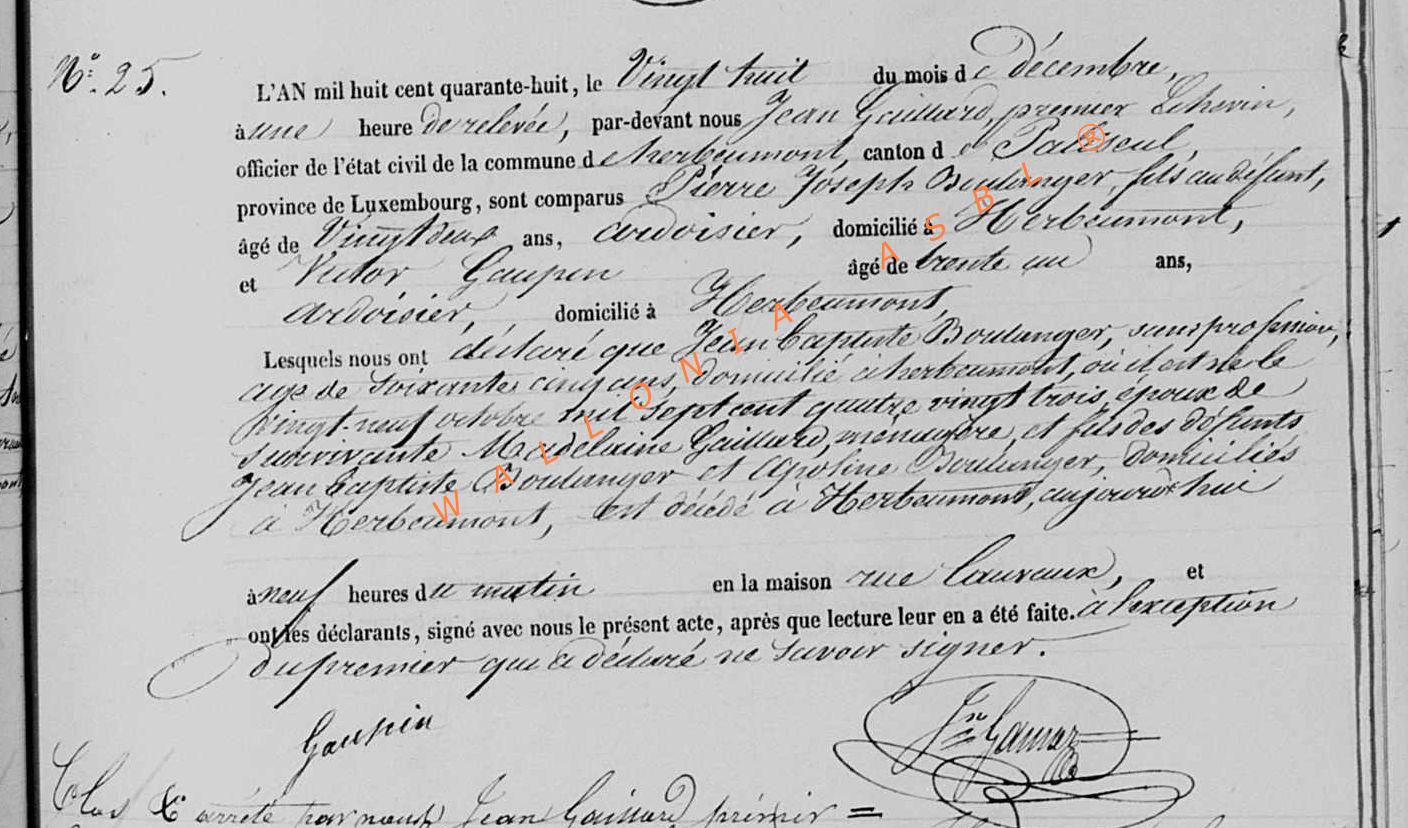 N° 25.
L'AN mil huit cent quarante-huit, le Vingt huit du mois de décembre,
à une heure de relevée, par-devant nous Jean Gaillard, premier Echevin,
officier de l'état civil de la commune de herbeumont, canton de Paliseul,
province de Luxembourg, sont comparus Pierre Joseph Boulanger, fils au défunt,
âgé de Vingt deux ans, ardoisier, domicilié à Herbeumont,
et Victor Gaupin âgé de trente un ans,
ardoisier, domicilié à Herbeumont,
Lesquels nous ont déclaré que Jean baptiste Boulanger, sans profession,
age de soixante cinq ans, domicilié à herbeumont, où il est né le
Vingt-neuf octobre mil sept cent quatre vingt trois, époux de
survivante Madelaine Gaillard, ménagère, et fils des défunts
Jean baptiste Boulanger et Apoline Boulanger, domiciliés
à Herbeumont, est décédé à Herbeumont, aujourd'hui
à neuf heures du matin en la maison rue Lauvaux, et
ont les déclarants, signé avec nous le présent acte, après que lecture leur en a été faite. à l'exception
du premier qui a déclaré ne savoir signer.
Gaupin
Clos & arrêté par nous Jean Gaillard premier =
WALLONIA ASBL ®